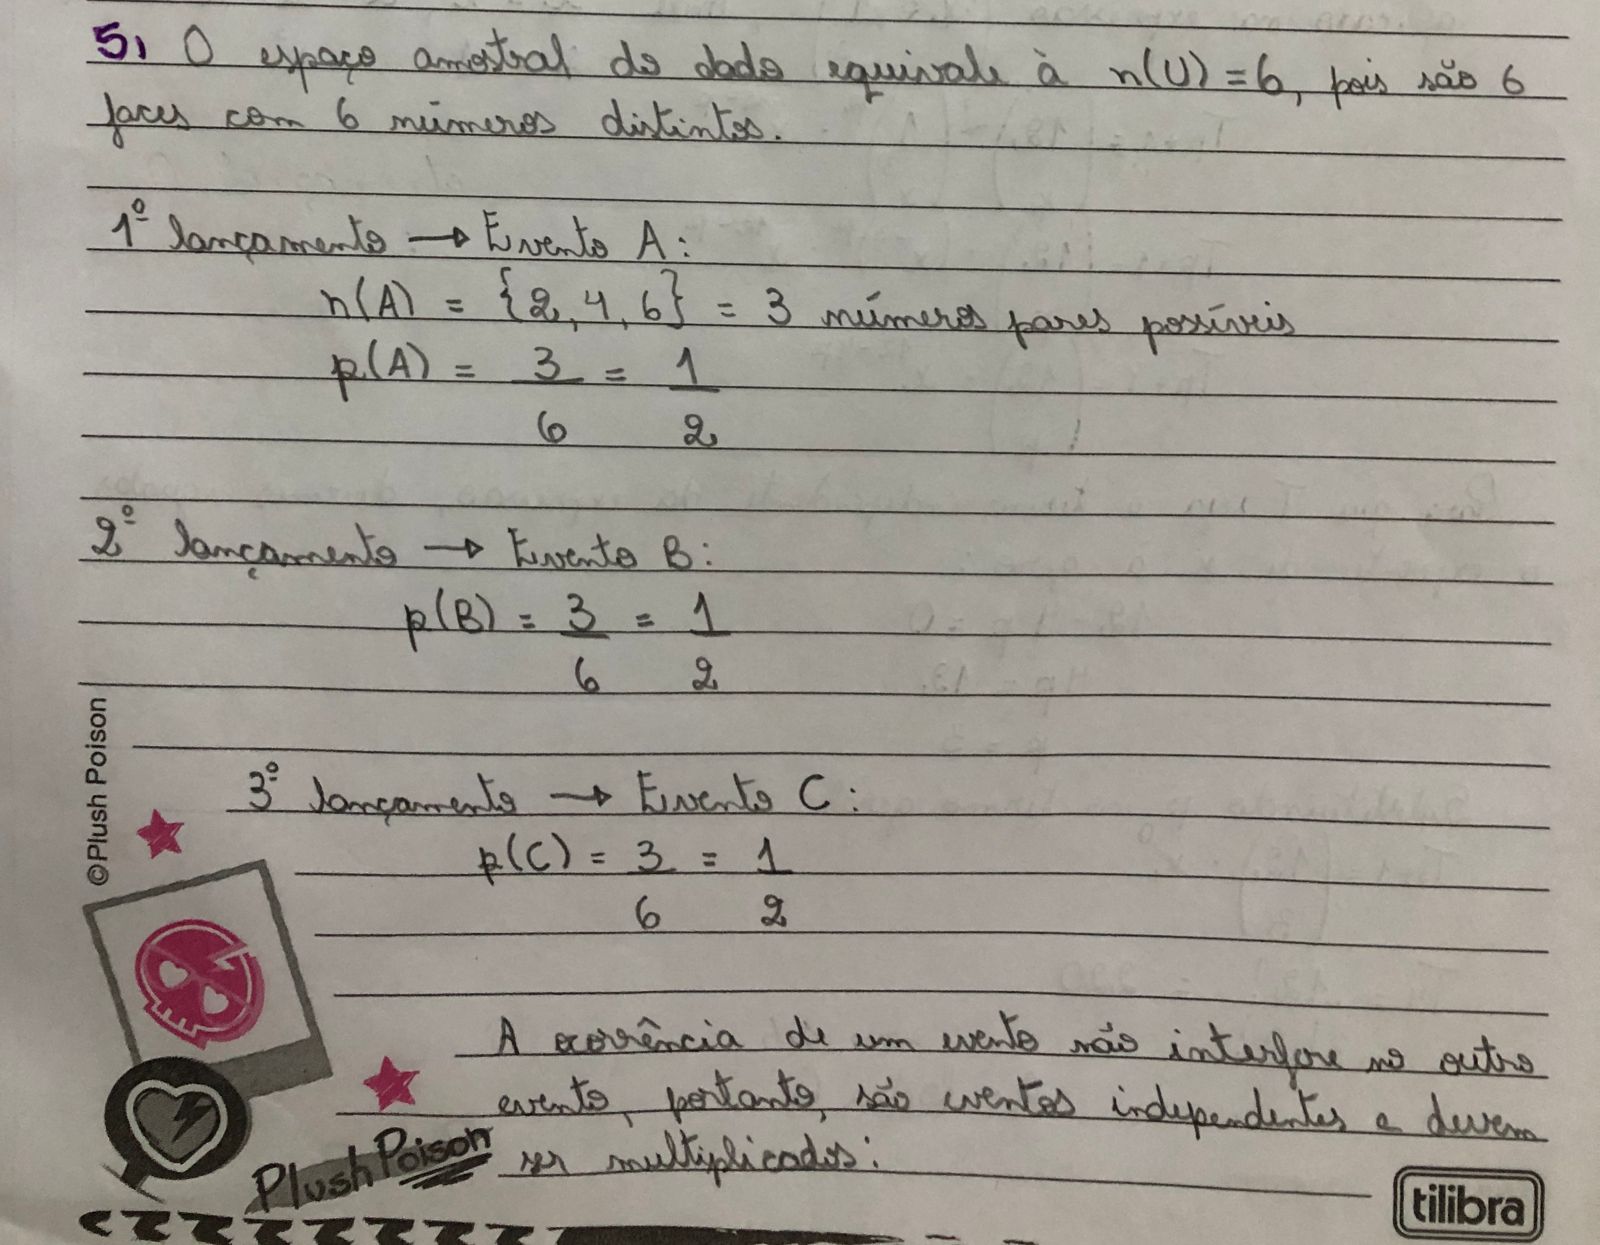 5, O espaço amostral do dado equivale à n(U) = 6, pois são 6
faces com 6 números distintos.
1º lançamento → Evento A:
n(A) = {2, 4, 6} = 3 números pares possíveis
p(A) = 3/6 = 1/2
2º lançamento → Evento B:
p(B) = 3/6 = 1/2
3º lançamento → Evento C:
p(C) = 3/6 = 1/2
A ocorrência de um evento não interfere no outro
evento, portanto, são eventos independentes e devem
ser multiplicados:
©Plush Poison
Plush Poison
tilibra